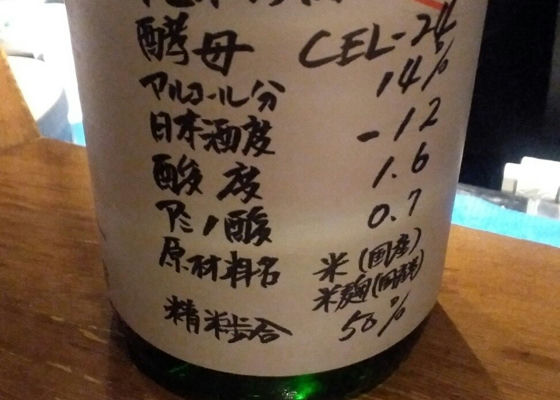 酵母 CEL-24
アルコール分 14%
日本酒度 -12
酸度 1.6
アミノ酸 0.7
原材料名 米(国産)
米麹(国産米)
精米歩合 50%